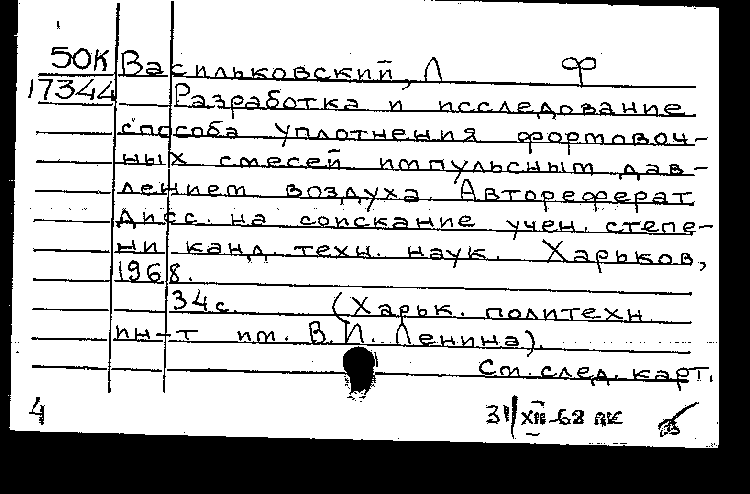 50К Васильковский, Л Ф
17344 Разработка и исследование
способа уплотнения формовоч-
ных смесей импульсным дав-
лением воздуха. Автореферат
дисс. на соискание учен. степе-
ни канд. техн. наук. Харьков,
1968.
34 с. (Харьк. политехн.
ин-т им. В. И. Ленина).
См. след. карт.
4 31/XII-68 ПК